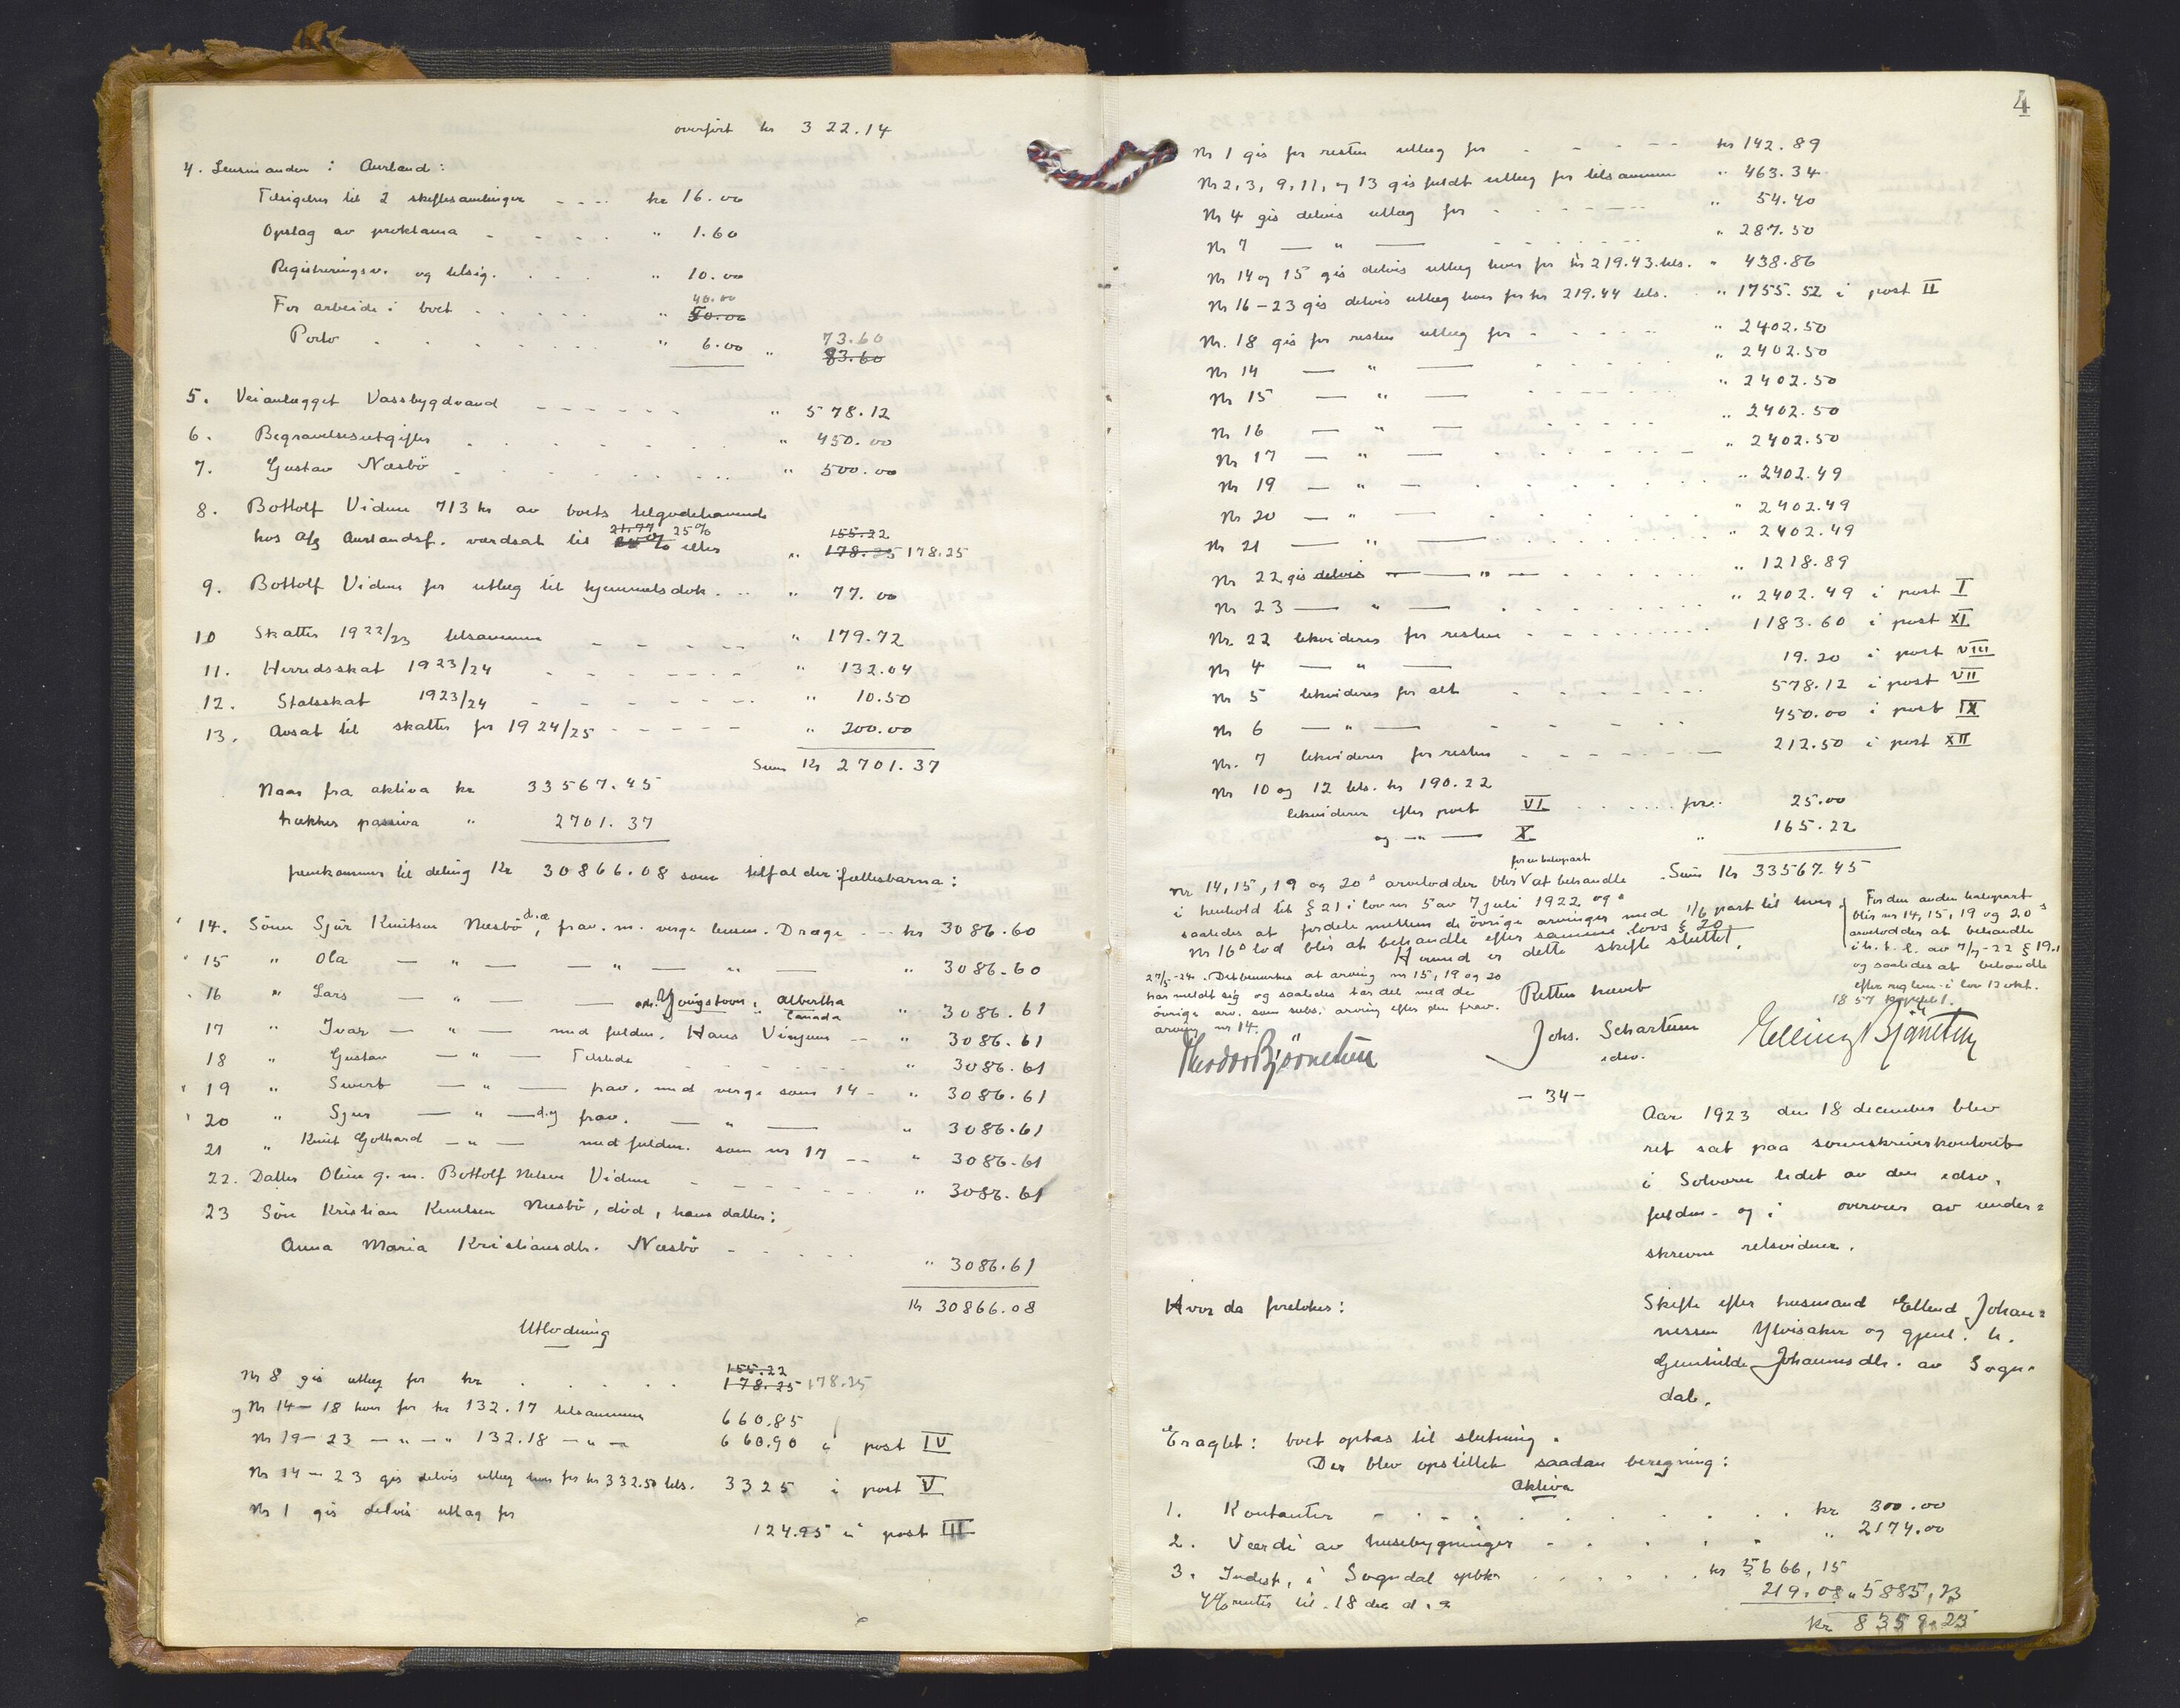 overført kr 322.14
4. Lensmanden i Aurland:
Tilsigelser til 2 skiftesamlinger - - - - kr 16.00
Opslag av proklama - - - - - " 1.60
Registreringsv. og tilsig. - . . . " 10.00
40.00
For arbeide i boet . . . . . . " 50.00
Porto . . . . . . . . . " 6.00 " 73.60
83.60
5. Veianlægget Vassbygdvand - - - - - - " 578.12
6. Begravelsesutgifter . . . . . . . " 450.00
7. Gustav Næsbö . . . . . . . . " 500.00
8. Bottolf Vidme 713 kr av boets tilgodehavende
21.77 25% 155.22
hos A/s Aurlandsf. værdsat til 25% eller " 178.25 178.25
9. Bottolf Vidme for utlæg til hjemmelsdok. . . . " 77.00
10 Skatter 1922/23 tilsammen - - - - - " 179.72
11. Herredsskat 1923/24 - - - - - - - " 132.04
12. Statsskat 1923/24 - - - - - - - " 10.50
13. Avsat til skatter for 1924/25 - - - - - " 200.00
Sum Kr 2701.37
Naar fra aktiva kr 33567.45
trækkes passiva " 2701.37
fremkommer til deling Kr 30866.08 som tilfalder fællesbarna:
14. Sönn Sjur Knutsen Næsbö d.æ, frav. m. verge lensm. Dræge - - kr 3086.60
15 " Ola — " — — " — — " — " 3086.60
16 " Lars — " — — adr. Youngstown, Albertha
Canada " 3086.61
17 " Ivar — " — med fuldm. Hans Vinjum - - " 3086.61
18 " Gustav — " — Tilstede - - - - - " 3086.61
19 " Sivert — " — frav. med verge som 14 - " 3086.61
20 " Sjur — " — d.y frav. — " — " 3086.61
21 " Knut Gothard — " — med fuldm. som nr 17 - - " 3086.61
22. Datter Oline g. m. Bottolf Nelsen Vidme - - - - - - - " 3086.61
23 Sön Kristian Knutsen Næsbö, död, hans datter:
Anna Maria Kristiansdtr. Næsbö - - . . . .
" 3086.61
Kr 30866.08
Utlodning
155.22
Nr 8 gis utlæg for kr . . . . . 178.25 178.25
og Nr 14 - 18 hver for kr 132.17 tilsammen 660.85
Nr 19 - 23 — " — " 132.18 — " — 660.90 i post IV
Nr 14 - 23 gis delvis utlæg hver for kr 332.50 tils. 3325 i post V
Nr 1 gis delvis utlæg for
124.95 i post III
4
Nr 1 gis for resten utlæg for - - - - - kr 142.89
Nr 2, 3, 9, 11, og 13 gis fuldt utlæg for tilsammen " 463.34
Nr 4 gis delvis utlæg for - - - - - - " 54.40
Nr 7 — " — - - - - - - " 287.50
Nr 14 og 15 gis delvis utlæg hver for kr 219.43 tils. " 438.86
Nr 16 - 23 gis delvis utlæg hver for kr 219.44 tils. " 1755.52 i post II
Nr. 18 gis for resten utlæg for - - - - - " 2402.50
Nr 14 — " — . . . . " 2402.50
Nr 15 — " — - - - - - " 2402.50
Nr 16 — " — - - - - - " 2402.50
Nr 17 — " — - - - - - " 2402.50
Nr 19 — " — . . . . . . " 2402.49
Nr 20 — " — . . . . . . " 2402.49
Nr 21 — " — . . . . . . " 2402.49
Nr 22 gis delvis — " — . . . . . " 1218.89
Nr 23 — " — . . . . . . " 2402.49 i post I
Nr. 22 likvideres for resten - - - - - - - 1183.60 i post XI
Nr 4 — " — 19.20 i post VIII
Nr 5 likvideres for alt - - - - - 578.12 i post VII
Nr 6 — " — - - - - - 450.00 i post IX
Nr. 7 likvideres for resten - - - - - — 212.50 i post XII
Nr 10 og 12 tils. kr 190.22
likvideres efter post VI . . . . . for. 25.00
og — " — X " 165.22
Sum Kr 33567.45
for en halvpart
Nr 14, 15, 19 og 20s arvelodder blir V at behandle
i henhold til § 21 i lov nr 5 av 7 juli 1922 og
saaledes at fordele mellem de övrige arvinger med 1/6 part til hver
Nr 16s lod blir at behandle efter samme lovs § 20.
Hermed er dette skifte sluttet.
For den anden halvpart
blir nr 14, 15, 19 og 20s
arvelodder at behandle
i h. t. l. av 7/7-22 § 19.1
og saaledes at behandle
efter reglene i lov 12 okt.
1857 kapitel 1.
27/5-24. Det bemerkes at arving nr 15, 19 og 20
har meldt sig og saaledes tar del med de
övrige arv. som subs. arving efter den frav.
arving nr 14.
Retten hævet
Johs. Schartum
edsv.
Elling Bjørnetun
Theodor Bjørnetun
- 34 -
Aar 1923 den 18 december blev
ret sat paa sorenskriverkontoret
i Solvorn ledet av den edsv.
fuldm. og i overvær av under=
skrevne retsvidner.
Hvor da foretokes:
Skifte efter husmand Ellend Johan=
nessen Ylvisaker og gjenl. h.
Gunhilda Johannesdtr. av Sogn=
dal.
Eragtet: boet optas til slutning.
Der blev opstillet saadan beregning:
Aktiva
1. Kontanter - . - . . . . . . . . . kr 300.00
2. Værdi av husebygninger - . . . . " 2174.00
3. Indest. i Sogndal spbk . . . . . kr 5666,15
4% renter til 18 des d. a 219.08 " 5885,23
Kr 8359.23